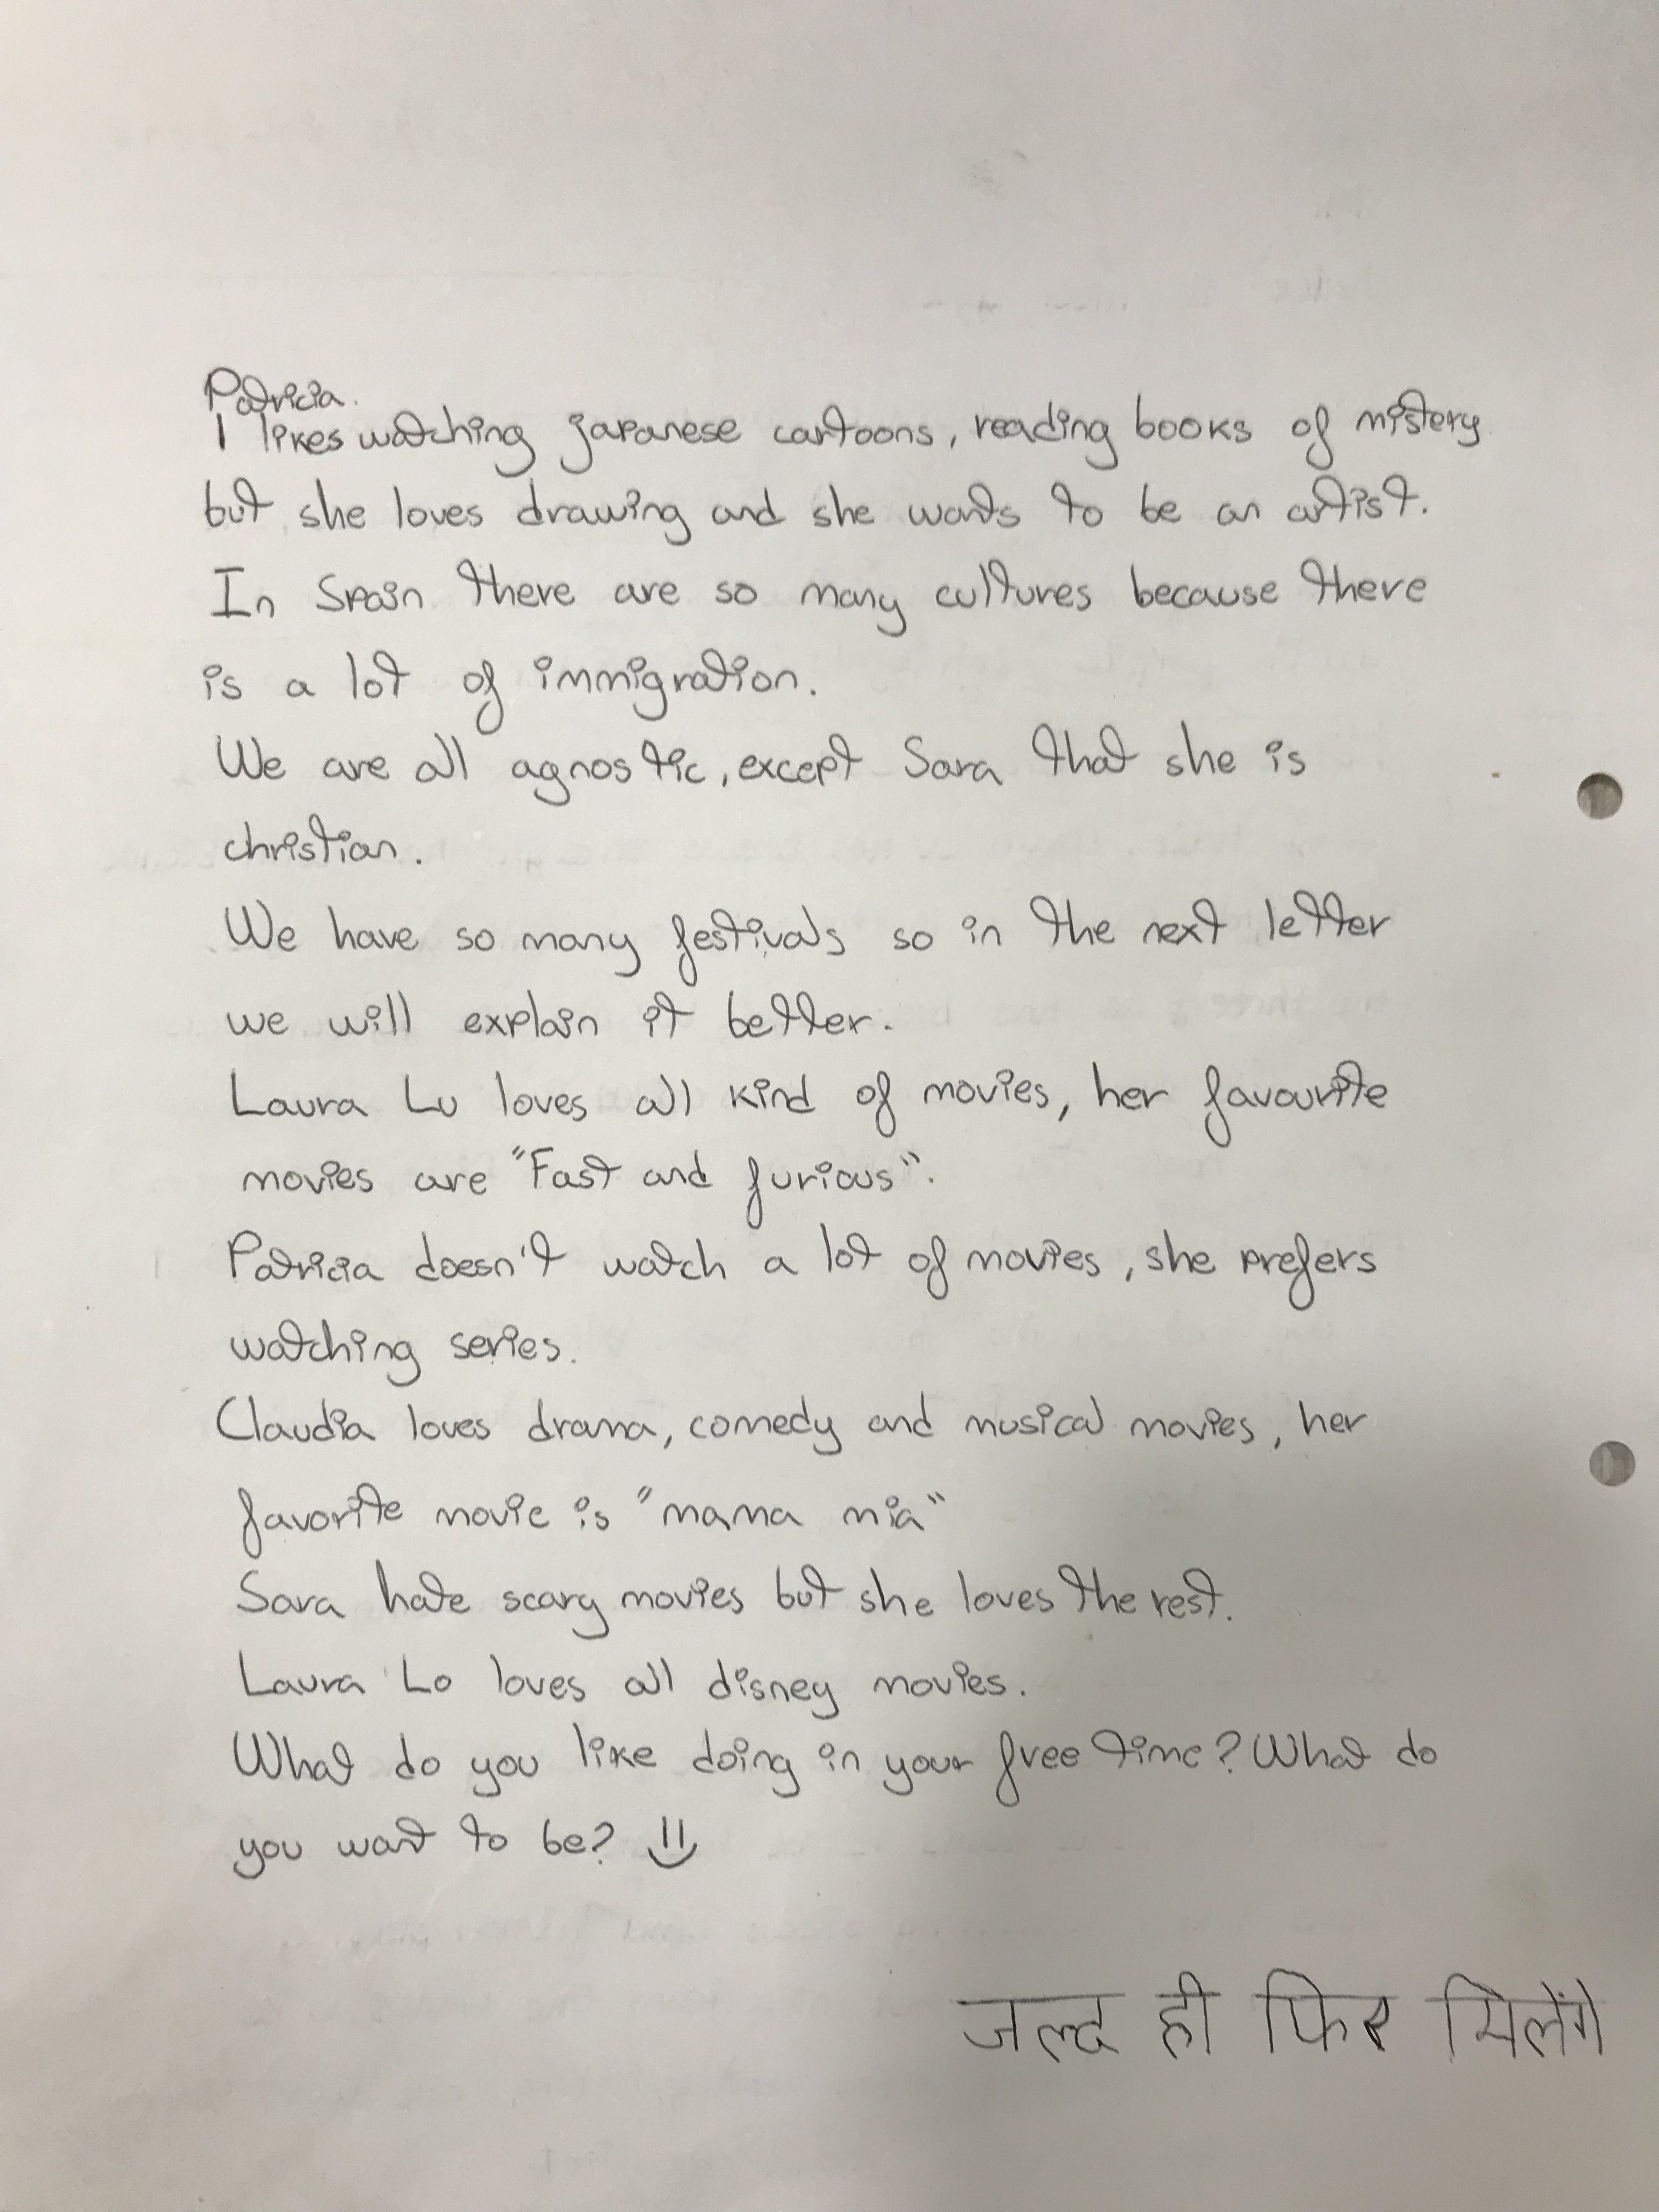 Patricia.
I likes watching japanese cartoons, reading books of mistery
but she loves drawing and she wants to be an artist.
In Spain there are so many cultures because there
is a lot of immigration.
We are all agnostic, except Sara that she is
christian.
We have so many festivals so in the next letter
we will explain it better.
Laura Lu loves all kind of movies, her favourite
movies are "Fast and furious".
Patricia doesn't watch a lot of movies, she prefers
watching series.
Claudia loves drama, comedy and musical movies, her
favorite movie is "mama mia"
Sara hate scary movies but she loves the rest.
Laura Lo loves all disney movies.
What do you like doing in your free time? What do
you want to be?
जल्द ही फिर मिलेंगे